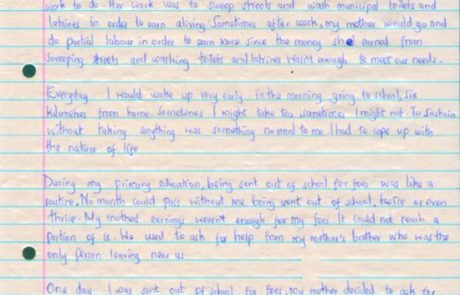 work to do. Her work was to sweep streets and wash municipal toilets and
latrines in order to earn aliving. Sometimes after work, my mother would go and
do partial labour in order to earn more since the money she earned from
sweeping streets and washing toilets and latrines wasn't enough to meet our needs.
Everyday I would wake up very early in the morning going to school, six
kilometres from home. Sometimes I might take tea sometimes I might not. To sustain
without taking anything was something normal to me. I had to cope up with
the nature of life
During my primary education, being sent out of school for fees was like a
routine. No month could pass without me being sent out of school, twice or even
thrice. My mothers earnings weren't enough for my fees. It could not reach a
portion of it. We used to ask for help from my mother's brother who was the
only person leaving near us.
One day I was sent out of school for fees, my mother decided to ask for